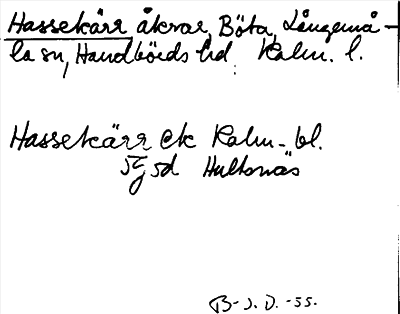 Hassekärr åkrar, Böta, Långemå-
la sn, Handbörds hd. Kalm. l.
Hassekärr ek Kalm.-bl.
5g 5d Hultsnäs
B-J. D. -55.